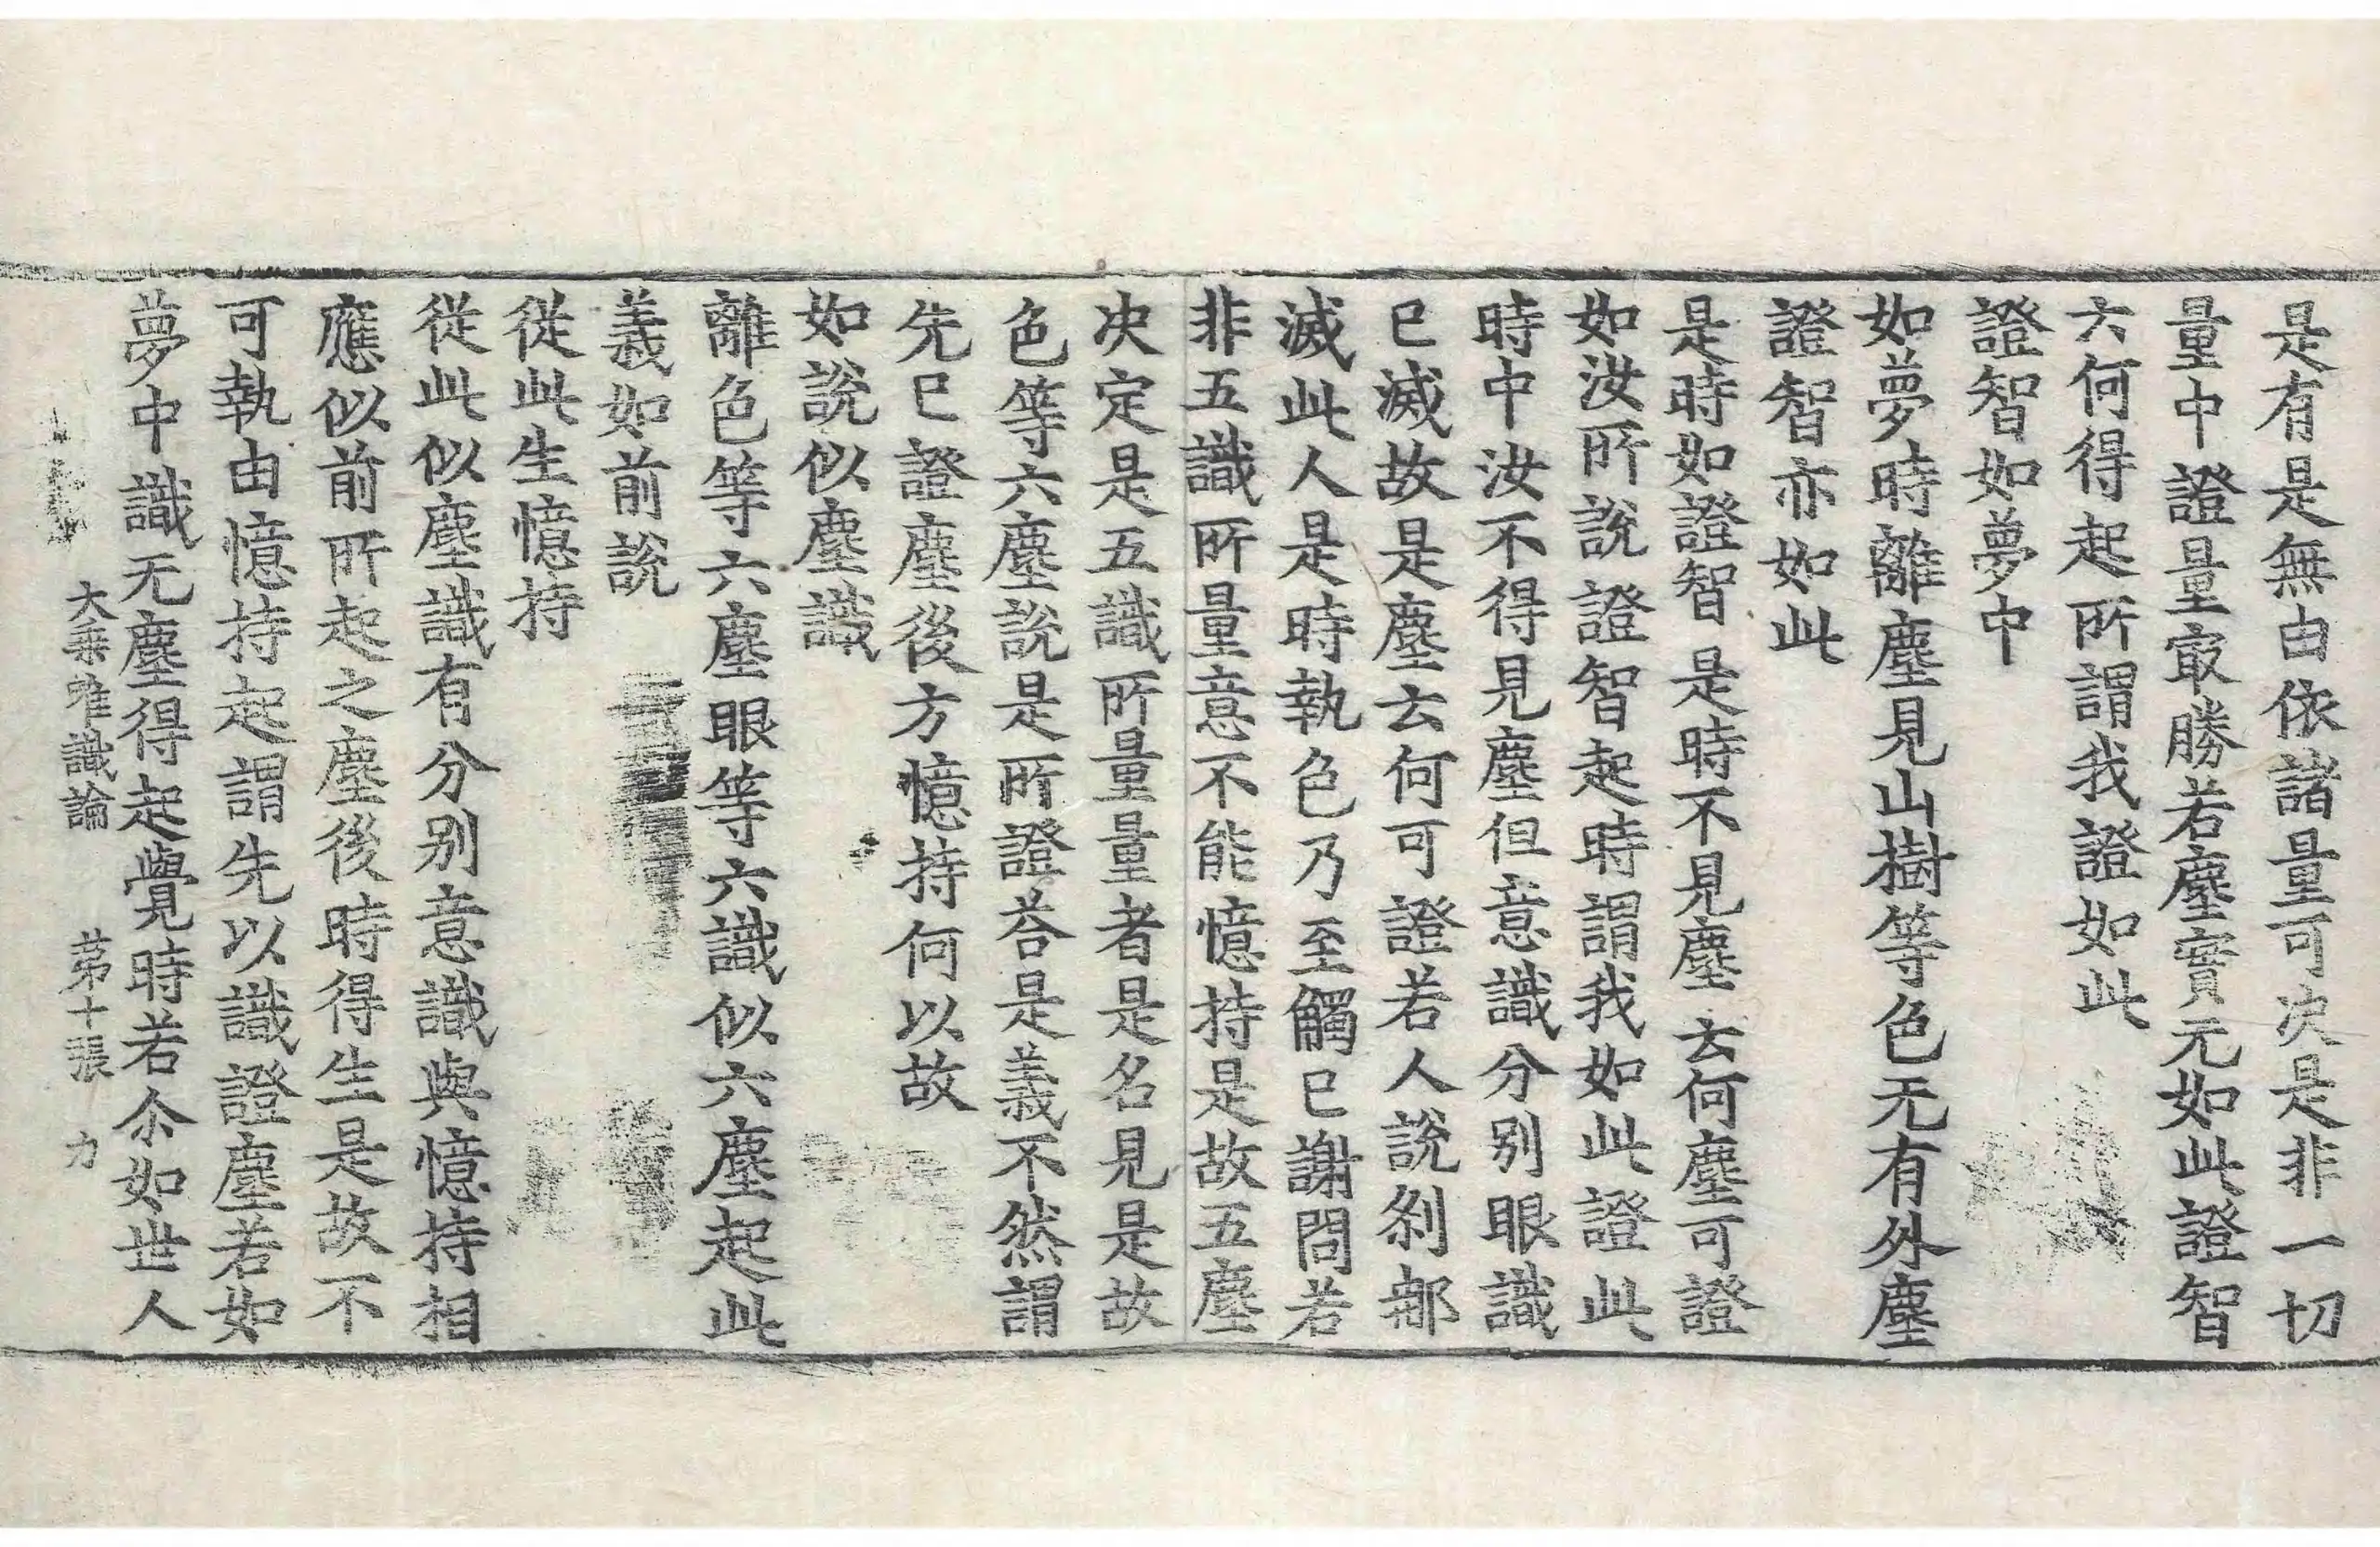 是有是無由依諸量可决是非一切
量中證量㝡勝若塵實无如此證智
六何得起所謂我證如此
證智如夢中
如夢時離塵見山樹等色无有外塵
證智亦如此
是時如證智是時不見塵云何塵可證
如汝所說證智起時謂我如此證此
時中汝不得見塵但意識分別眼識
已滅故是塵云何可證若人說剎那
滅此人是時執色乃至觸已謝問若
非五識所量意不能憶持是故五塵
决定是五識所量量者是名見是故
色等六塵說是所證荅是義不然謂
先已證塵後方憶持何以故
如說似塵識
離色等六塵眼等六識似六塵起此
義如前說
從此生憶持
從此似塵識有分別意識與憶持相
應似前所起之塵後時得生是故不
可執由憶持起謂先以識證塵若如
夢中識无塵得起覺時若尒如世人
大乘唯識論 苐十張 力